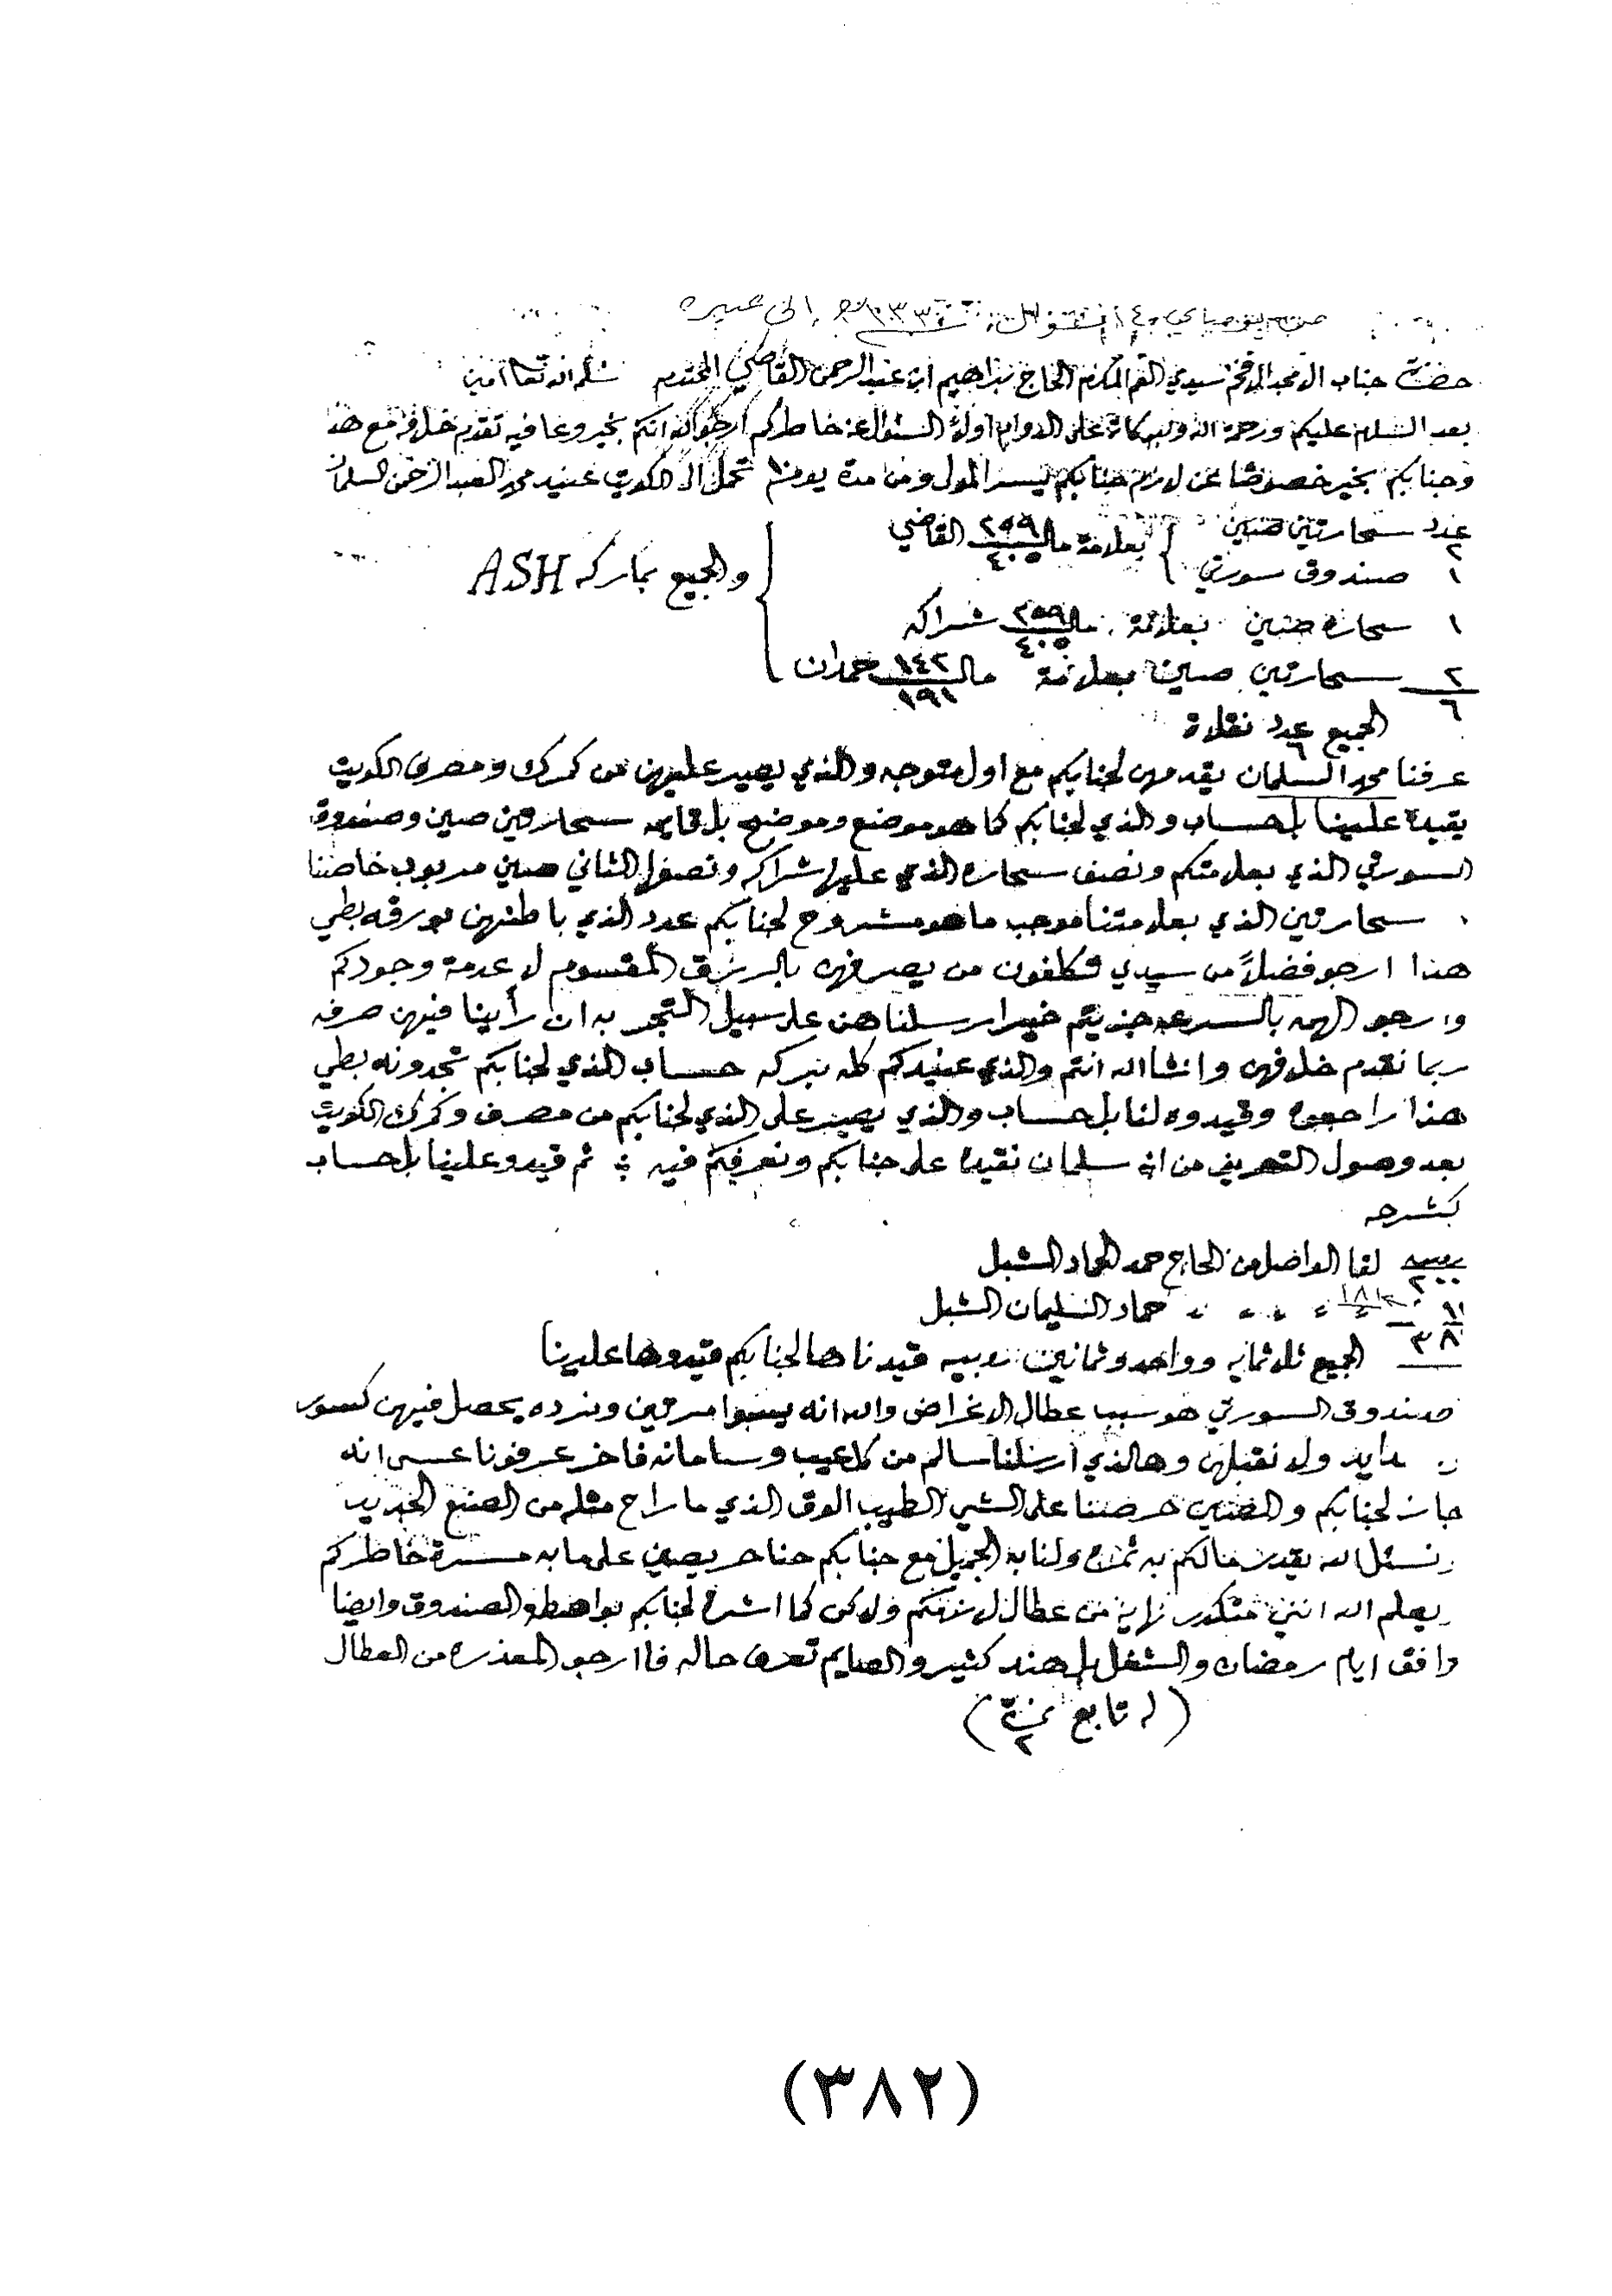 من بومباي ١٤ شوال سنة ١٣٣٦ إلى عنيزه
حضرت جناب الامجد الافخم سيدي العم المكرم الحاج ابراهيم ابن عبد الرحمن القاضي المحترم سلمه الله تعالى امين
بعد السلام عليكم ورحمة الله وبركاته على الدوام اولا السئوال عن خاطركم ارجو الله انكم بخير وعافيه تقدم خلافه مع هذا
وجنابكم بخير خصوصًا عن لازم جنابكم ليسر المول ومن مدة يومين تحمل الى الكويت عنيد محمد العبد الرحمن السلمان
عدد
٢ سحارتين صينين
١ صندوق سورتي } بعلامة مال ٢٥٩٨/٤٠٥ القاضي
١ سحاره صينين بعلامة مال ٢٥٩٨/٤٠٥ شراكه
٢ سحارتين صينين بعلامة مال ١٤٢/١٩١ حمدان
} والجميع بماركه ASH
٦ الجميع عدد ٦ نقلات
عرفنا محمد السلمان يقدمهن لجنابكم مع اول متوجه والذي يصير عليهن من كمرك ومصرف الكويت
يقيده علينا بلحساب والذي لجنابكم كما هو موضع وموضح بل قايمه سحارتين صين وصندوق
السورتي الذي بعلامتكم ونصف سحارة الذي عليها شراكه ونصفها الثاني صين مدبوب خاصتنا
سحارتين الذي بعلامتنا موجب ما هو مشروح لجنابكم عدد الذي باطنهن بورقه بطي
هذا ارجو فضلاً من سيدي تكلفون من يصرفهن بالرزق المقسوم لا عدمة وجودكم
وارجو الهمه بالسرعه ارسلناهن على سبيل التجربه ان رأينا فيهن صرفه
ربما نقدم خلافهن وانشاالله انتم والذي عنيدكم كله بركه حساب الذي لجنابكم تجدونه بطي
هذا راجعوه وقيدوه لنا بلحساب والذي يصير على الذي لجنابكم من مصرف وكمرك الكويت
بعد وصول التعريف من ابن سلمان نقيده على جنابكم ونعرفكم فيه ؛ ثم قيدو علينا بلحساب
كشرحه
ربيه ٢٠٠ لقا الواصل من الحاج حمد الحماد الشبل
١٨١ " " " " حماد السليمان الشبل
٣٨١ الجميع ثلاثمايه وواحد وثمانين روبيه قيدناها لجنابكم قيدوها علينا
صندوق السورتي هو سبب عطال الاغراض والله انه مرتين ونرده يحصل فيهن كسور
ولا نقبلهن وهالذي ارسلنا سالم من كل عيب وسامانه فاخر عرفونا عسى انه
جاز لجنابكم والصين حرصنا على الشي الطيب الوق الذي ما راح مثله من الصنع الجديد
نسئل الله يقدر مالكم به ثمره ولنا به الجميل مع جنابكم حنا حريصين على ما به مسرة خاطركم
يعلم الله انني متكدر نهاية من عطال لازمكم ولاكن كما اشرة لجنابكم بواسطة الصندوق وايضا
وافق ايام رمضان والشغل بل هند كثير والصايم تعرف حاله فا ارجو المعذره من العطال
(١ تابع نمرة ٢)
(٣٨٢)